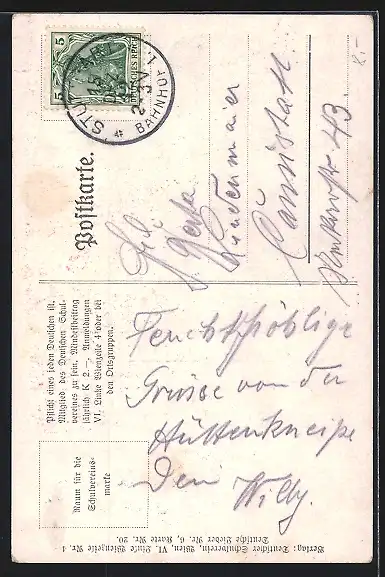 5
5
DEUTSCHES REICH
STUTTGART
15
2-3 V
BAHNHOF 1.
8.-
Postkarte.
Frl.
Cannstatt
43.
Pflicht eines jeden Deutschen ist,
Mitglied des Deutschen Schul-
vereines zu sein. Mindestbeitrag
jährlich K 2.—. Anmeldungen
VI. Linke Wienzeile 4 oder bei
den Ortsgruppen.
Raum für die
Schulvereins-
marke
Feuchtfröhliche
Grüsse von der
Hüttenkneipe
Dein Willy.
Verlag: Deutscher Schulverein, Wien, VI. Linke Wienzeile Nr. 4
Deutsche Lieder Nr. 6, Karte Nr. 20.